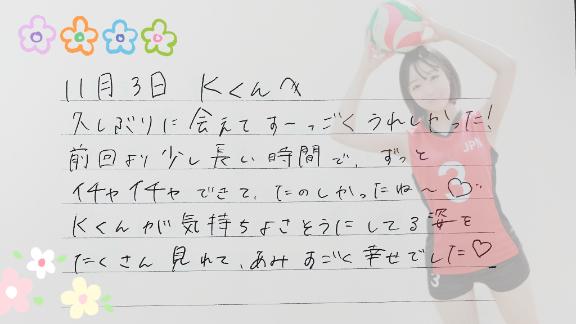 11月3日 Kくんへ
久しぶりに会えてすーっごくうれしかった!
前回より少し長い時間で、ずっと
イチャイチャできて、たのしかったね〜♡
Kくんが気持ちよさそうにしてる姿を
たくさん見れて、あみすごく幸せでした♡
JPN
3